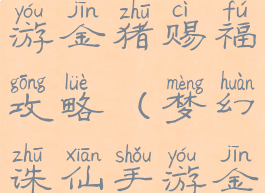 yóu jīn zhū cì fú
游金猪赐福
gōng lüè mèng huàn
攻略（梦幻
zhū xiān shǒu yóu jīn
诛仙手游金